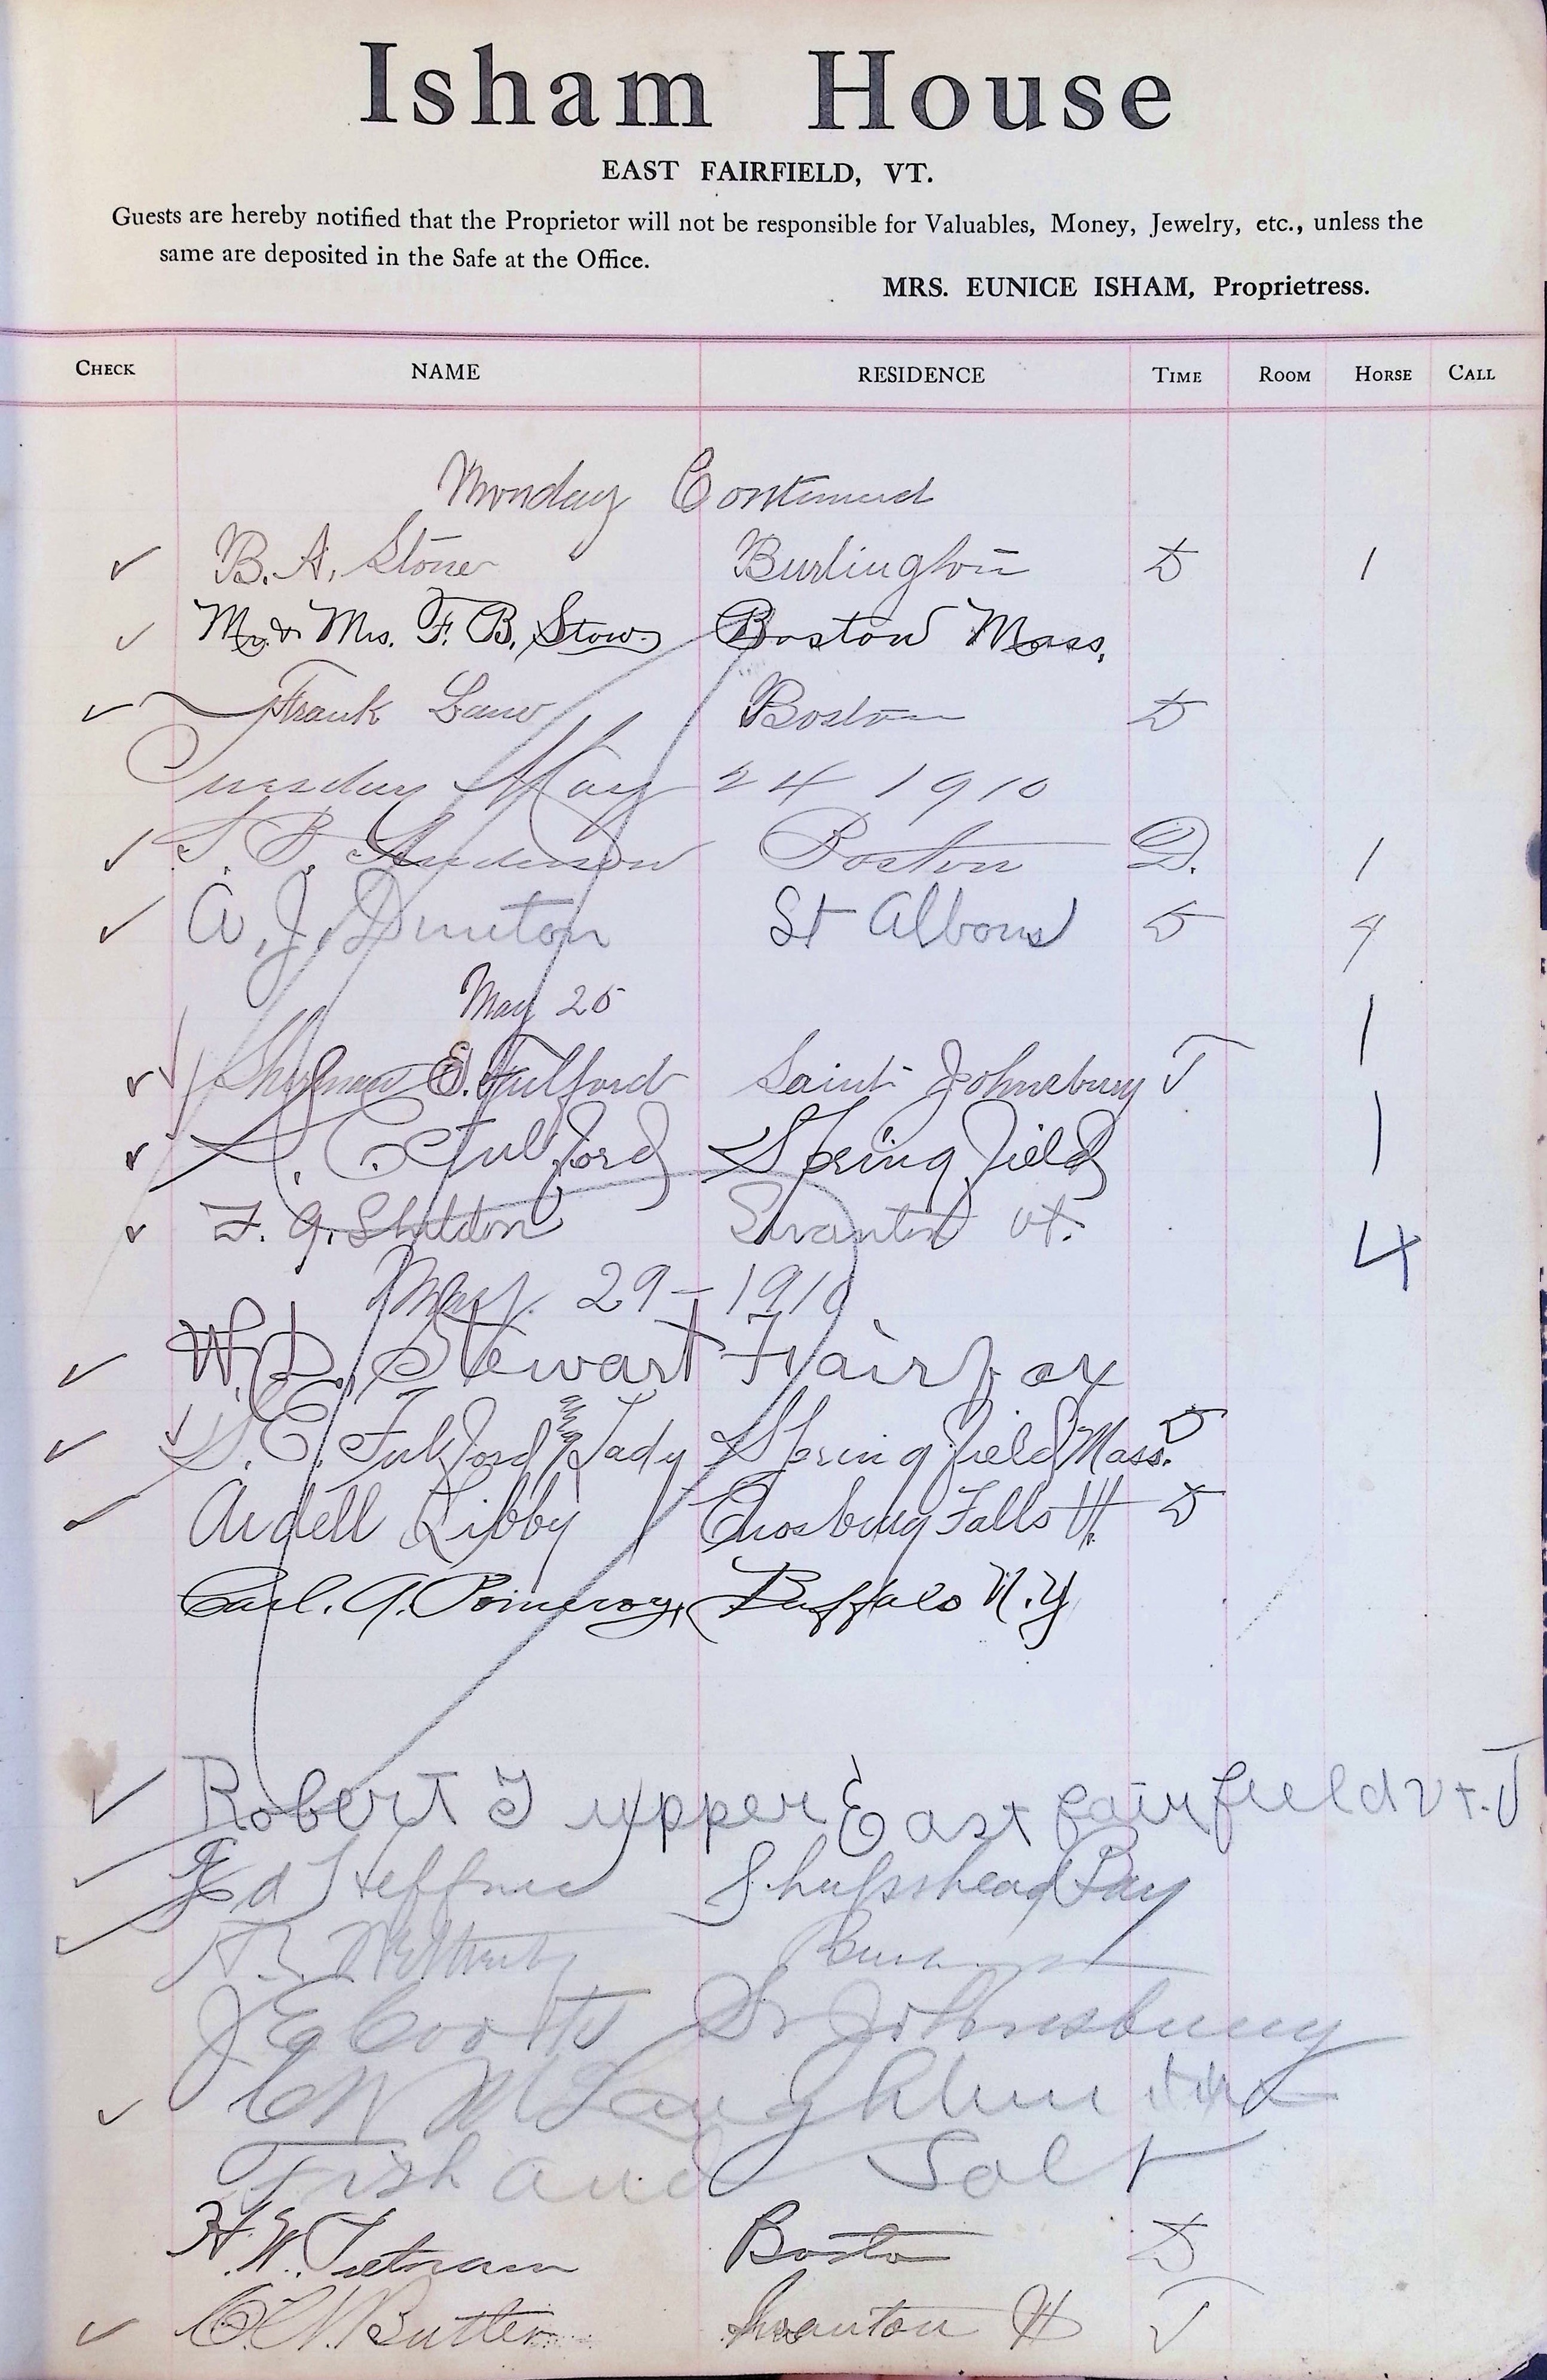 Isham House
EAST FAIRFIELD, VT.
Guests are hereby notified that the Proprietor will not be responsible for Valuables, Money, Jewelry, etc., unless the
same are deposited in the Safe at the Office.
MRS. EUNICE ISHAM, Proprietress.
CHECK NAME RESIDENCE TIME ROOM HORSE CALL
Monday Continued
B. A. Stone Burlington D 1
Mr. & Mrs. F. B. Stow Boston Mass.
Frank Lane Boston D
Tuesday May 24 1910
S. B. Anderson Boston D. 1
A. J. Dunton St Albans D
May 25 1
E. Fulford Saint Johnsbury T
S. E. Fulford Springfield 1
F. G. Sheldon Swanton Vt. 4
May. 29-1910
W. D. Stewart Fairfax
S. E. Fulford & Lady Springfield Mass. D
Ardell Libby Enosburg Falls Vt. D
Carl. A. Pomeroy, Buffalo N. Y
Robert T upper East fairfield vt. T
Ed Heffner Bay
J E Coolts St Johnsbury
C W McLaughlin
Fish and Salt
H. W. Putnam Boston D
C. W. Butler Swanton Vt T